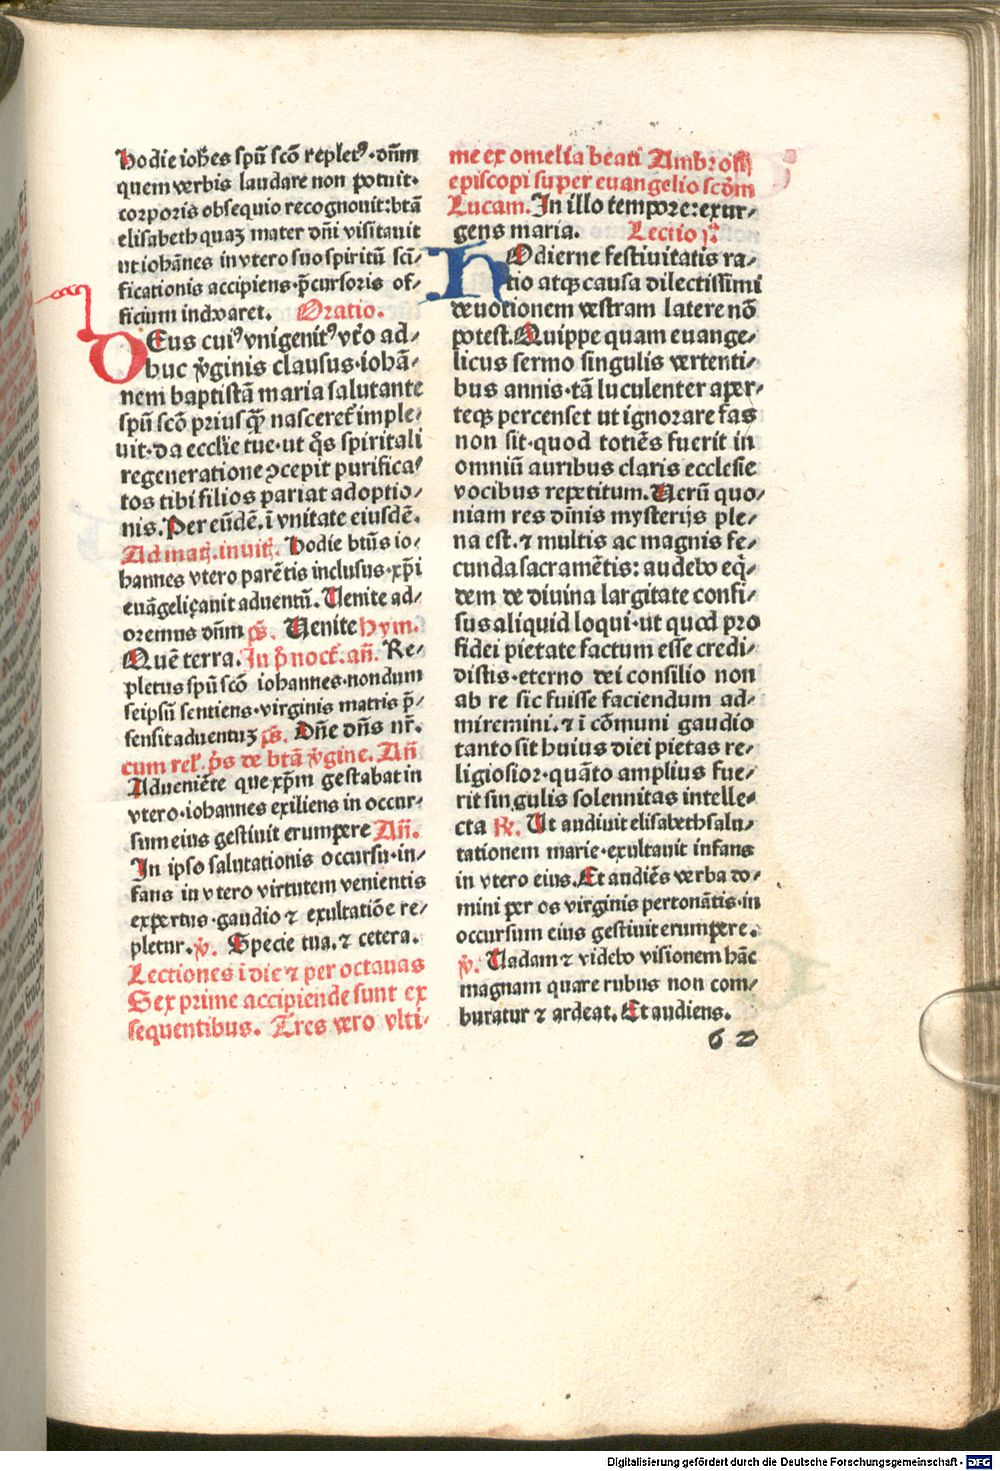 hodie ioh̄es spū scō replet⁹·dn̄m
quem verbis laudare non potuit·
corporis obsequio recognouit:btā
elisabeth quaꝫ mater dn̄i visitauit
ut iohānes in vtero suo spiritū scī-
ficationis accipiens·p̄cursoris of-
ficium indvaret. Oratio.
DEus cui⁹ vnigenit⁹ vt̄o ad-
huc v̄ginis clausus·iohā-
nem baptistā maria salutante
spū scō priusqꝫ nasceret̄ imple-
uit·da eccl̄ie tue·ut q̄s spiritali
regeneratione ꝯcepit purifica-
tos tibi filios pariat adoptio-
nis. Per eūdē. ī vnitate eiusdē.
Ad mat̄. inuit̄. Hodie btūs io-
hannes vtero parētis inclusus·xp̄i
euāgeliçauit aduentū. Uenite ad-
oremus dn̄m ps̄. Uenite hym.
Quē terra. In p̄ noct̄. an̄. Re-
pletus spū scō iohannes·nondum
seipsū sentiens·virginis matris p̄-
sensit aduentuꝫ ps̄. Dn̄e dn̄s nr̄.
cum rel̄. p̄s de btā v̄gine. An̄
Aduenićte que xp̄m gestabat in
vtero·iohannes exiliens in occur-
sum eius gestiuit erumpere An̄.
In ipso salutationis occursu·in-
fans in vtero virtutem venientis
expertus·gaudio ⁊ exultatiōe re-
pletur. v̄. Specie tua. ⁊ cetera.
Lectiones ī die ⁊ per octauas
Sex prime accipiende sunt ex
sequentibus. Tres vero vlti-
me ex omelia beati Ambrosij
episcopi super euangelio scḋm
Lucam. In illo tempore: exur-
gens maria. Lectio
HOdierne festiuitatis ra-
tio atqꝫ causa dilectissimi
deuotionem vestram latere nō
potest. Quippe quam euange-
licus sermo singulis vertenti-
bus annis·tā luculenter aper-
teqꝫ percenset ut ignorare fas
non sit·quod totiēs fuerit in
omniū auribus claris ecclesie
vocibus repetitum. Uerū quo-
niam res diīnis mysterijs ple-
na est. ⁊ multis ac magnis fe-
cunda sacramētis: audebo eq̄-
dem de diuina largitate confi-
sus aliquid loqui·ut quod pro
fidei pietate factum esse credi-
distis·eterno dei consilio non
ab re sic fuisse faciendum ad-
miremini. ⁊ ī cōmuni gaudio
tanto sit huius diei pietas re-
ligiosior·quāto amplius fue-
rit singulis solennitas intelle-
cta ℟. Ut audiuit elisabeth salu-
tationem marie·exultauit infans
in vtero eius. Et audiēs verba do-
mini per os virginis pertonātis·in
occursum eius gestiuit erumpere.
v̄. Uadam ⁊ videbo visionem hāc
magnam quare rubus non com-
buratur ⁊ ardeat. Et audiens.
Digitalisierung gefördert durch die Deutsche Forschungsgemeinschaft - DFG